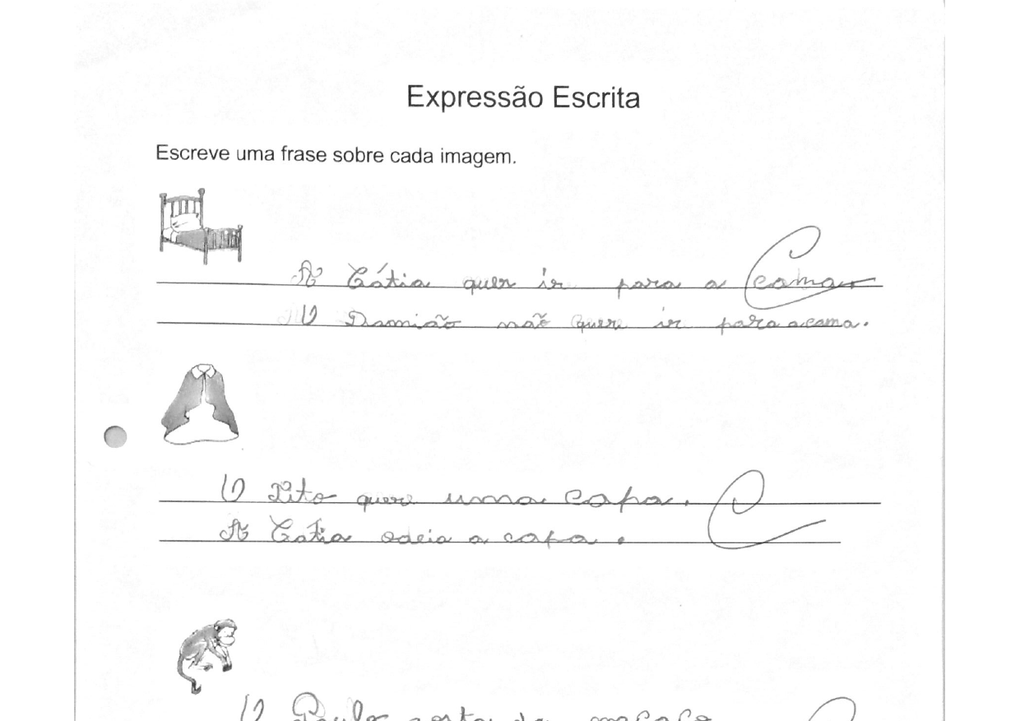 Expressão Escrita
Escreve uma frase sobre cada imagem.
A Cátia quer ir para a cama
O Damião não quer ir para a cama.
O Tito quere uma capa.
A Cátia odeia a capa.
O Paulo gosta do macaco